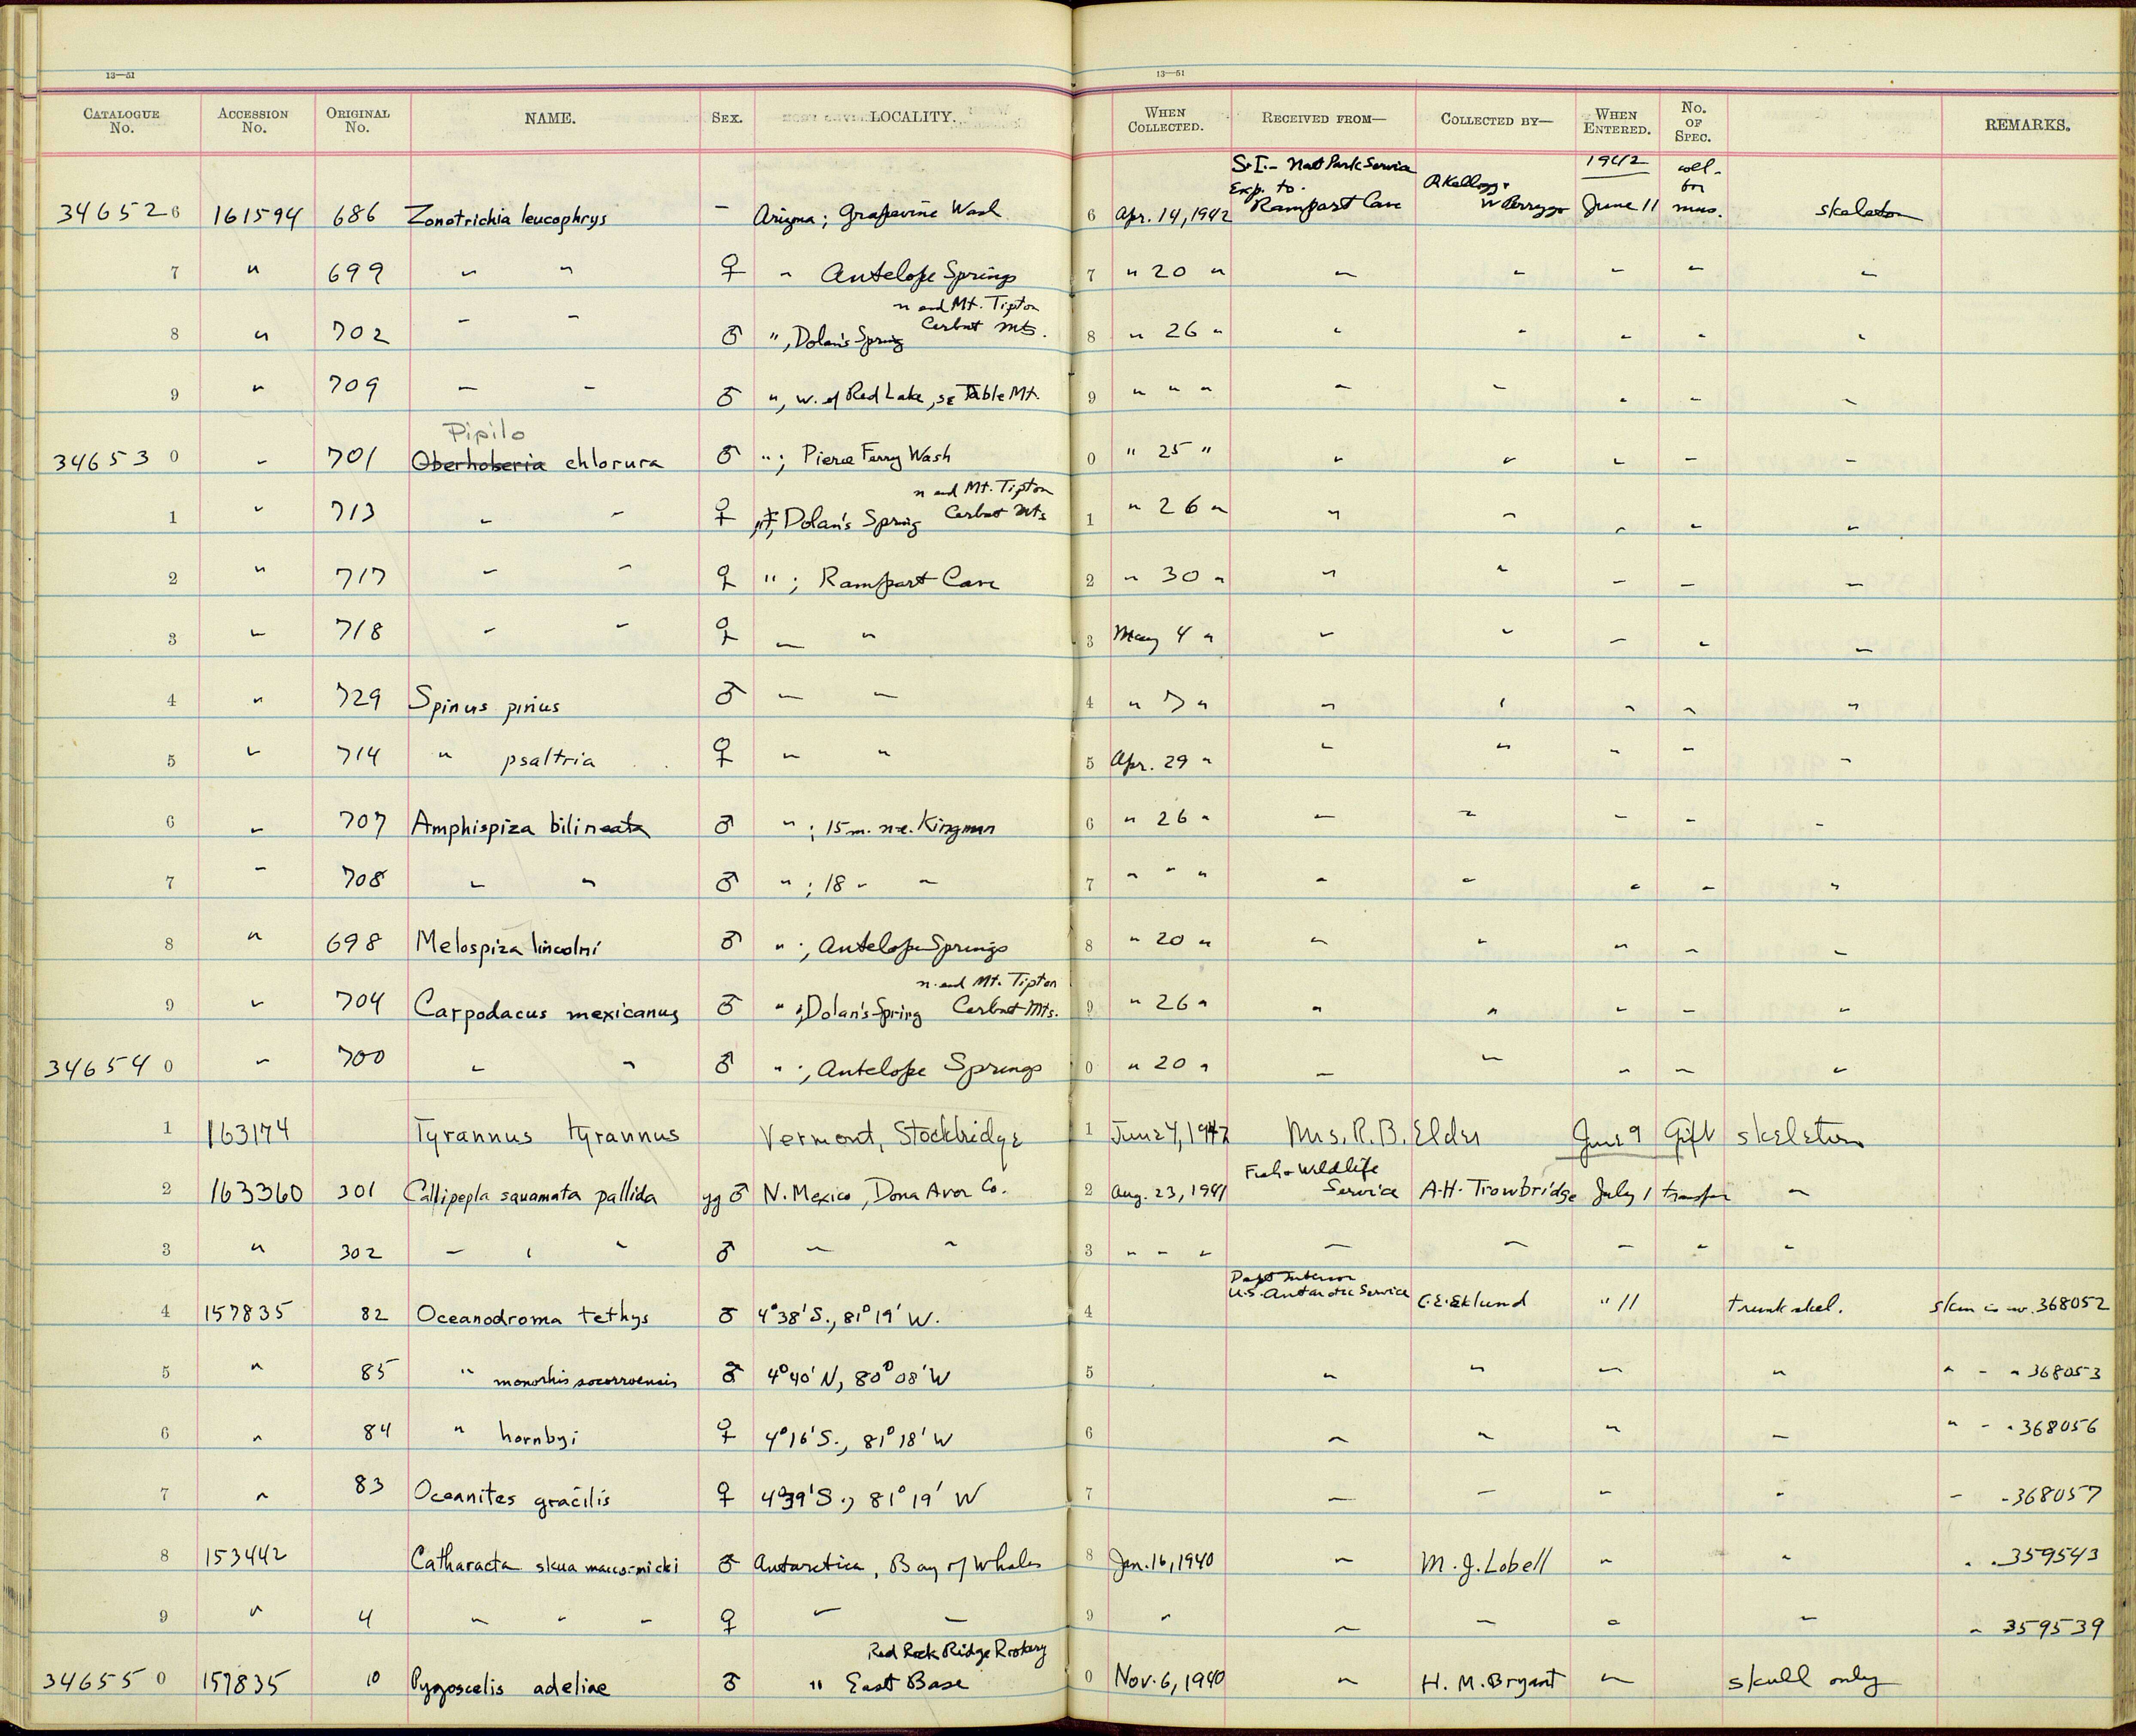 13—51 13—51
CATALOGUE No. ACCESSION No. ORIGINAL No. NAME. SEX. LOCALITY. WHEN COLLECTED. RECEIVED FROM— COLLECTED BY— WHEN ENTERED. No. OF SPEC. REMARKS.
S.I.- Nat Park Service 1942 coll-
Exp. to R Kellogg & for
346526 161594 686 Zonotrichia leucophrys - Arizona; Grapevine Wash 6 Apr. 14, 1942 Rampart Cave June 11 mus. skeleton
7 " 699 " " ♀ " Antelope Springs 7 " 20 " " " " " "
n end Mt. Tipton
8 " 702 " " ♂ ", Dolan's Spring Cerbat Mts. 8 " 26 " " " " " "
9 " 709 " " ♂ ", w. of Red Lake, SE Table Mt. 9 " " " " " " " "
Pipilo
346530 " 701 Oberholseria chlorura ♂ "; Pierce Ferry Wash 0 " 25 " " " " " "
n end Mt. Tipton
1 " 713 " " ♀ "; Dolan's Spring Cerbat Mts 1 " 26 " " " " " "
2 " 717 " " ♀ "; Rampart Cave 2 " 30 " " " " " "
3 " 718 " " ♀ " " 3 May 4 " " " " " "
4 " 729 Spinus pinus ♂ " " 4 " 7 " " " " " "
5 " 714 " psaltria ♀ " " 5 Apr. 29 " " " " " "
6 " 707 Amphispiza bilineata ♂ "; 15 m. n.e. Kingman 6 " 26 " " " " " "
7 " 708 " " ♂ "; 18 " " 7 " " " " " " " "
8 " 698 Melospiza lincolni ♂ "; Antelope Springs 8 " 20 " " " " " "
n. end Mt. Tipton
9 " 704 Carpodacus mexicanus ♂ "; Dolan's Spring Cerbat Mts. 9 " 26 " " " " " "
346540 " 700 " " ♂ "; Antelope Springs 0 " 20 " " " " " "
1 163174 Tyrannus tyrannus Vermont, Stockbridge 1 June 4, 1942 Mrs. R. B. Elder June 9 Gift skeleton
Fish & Wildlife
2 163360 301 Callipepla squamata pallida yg ♂ N. Mexico, Dona Ana Co. 2 Aug. 23, 1941 Service A. H. Trowbridge July 1 transfer "
3 " 302 " " " ♂ " " 3 " " " " " " " "
Dept Interior
4 157835 82 Oceanodroma tethys ♂ 4°38'S., 81°19'W. 4 U.S. Antarctic Service C. E. Eklund " 11 trunk skel. skin is no. 368052
5 " 85 " monorhis socorroensis ♂ 4°40'N, 80°08'W 5 " " " " " " " 368053
6 " 84 " hornbyi ♀ 4°16'S., 81°18'W 6 " " " " " " " 368056
7 " 83 Oceanites gracilis ♀ 4°39'S., 81°19'W 7 " " " " " " 368057
8 153442 Catharacta skua maccormicki ♂ Antarctica, Bay of Whales 8 Jan. 16, 1940 " M. J. Lobell " " " " 359543
9 " 4 " " " ♀ " " 9 " " " " " " 359539
Red Rock Ridge Rookery
346550 157835 10 Pygoscelis adeliae ♂ " East Base 0 Nov. 6, 1940 " H. M. Bryant " skull only